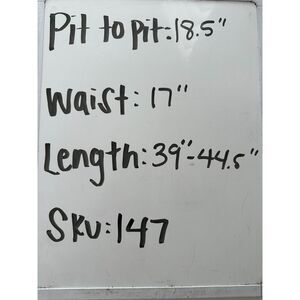 Pit to pit: 18.5"
Waist: 17"
Length: 39"-44.5"
SKU: 147